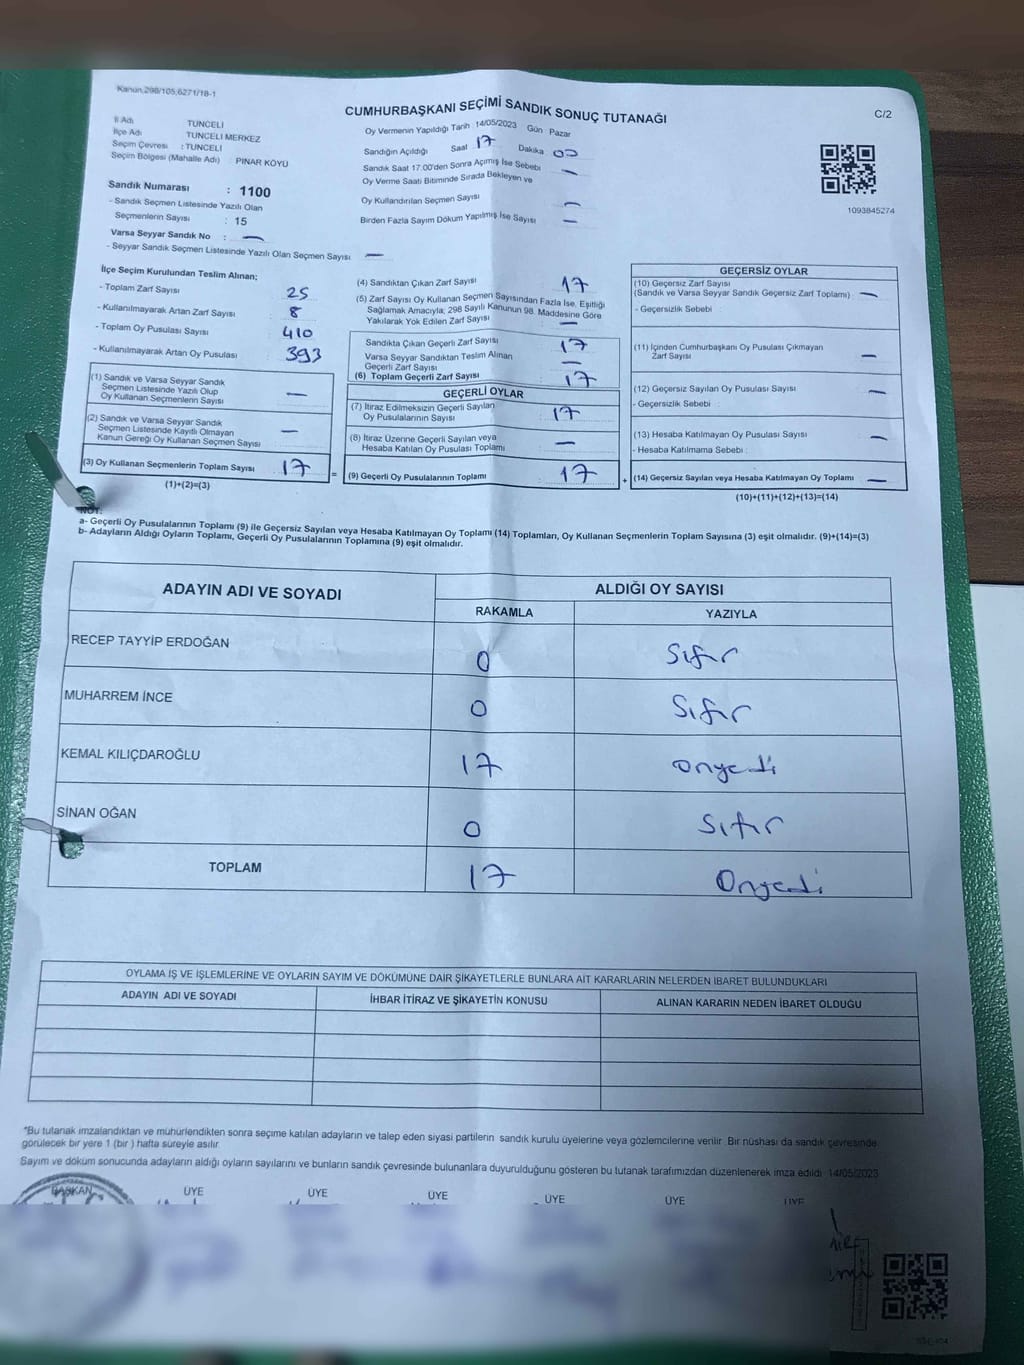 Kanun,298/105,6271/18-1
CUMHURBAŞKANI SEÇİMİ SANDIK SONUÇ TUTANAĞI
C/2
İl Adı TUNCELİ
İlçe Adı TUNCELİ MERKEZ
Seçim Çevresi : TUNCELİ
Seçim Bölgesi (Mahalle Adı) : PINAR KÖYÜ
Sandık Numarası : 1100
- Sandık Seçmen Listesinde Yazılı Olan
Seçmenlerin Sayısı : 15
Varsa Seyyar Sandık No : —
- Seyyar Sandık Seçmen Listesinde Yazılı Olan Seçmen Sayısı —
Oy Vermenin Yapıldığı Tarih 14/05/2023 Gün Pazar
Sandığın Açıldığı Saat 17 Dakika 00
Sandık Saat 17.00'den Sonra Açımış İse Sebebi —
Oy Verme Saati Bitiminde Sırada Bekleyen ve
Oy Kullandırılan Seçmen Sayısı —
Birden Fazla Sayım Döküm Yapılmış İse Sayısı —
1093845274
İlçe Seçim Kurulundan Teslim Alınan;
- Toplam Zarf Sayısı 25
- Kullanılmayarak Artan Zarf Sayısı 8
- Toplam Oy Pusulası Sayısı 410
- Kullanılmayarak Artan Oy Pusulası 393
(1) Sandık ve Varsa Seyyar Sandık
Seçmen Listesinde Yazılı Olup
Oy Kullanan Seçmenlerin Sayısı —
(2) Sandık ve Varsa Seyyar Sandık
Seçmen Listesinde Kayıtlı Olmayan
Kanun Gereği Oy Kullanan Seçmen Sayısı —
(3) Oy Kullanan Seçmenlerin Toplam Sayısı 17
(1)+(2)=(3)
(4) Sandıktan Çıkan Zarf Sayısı 17
(5) Zarf Sayısı Oy Kullanan Seçmen Sayısından Fazla İse, Eşitliği
Sağlamak Amacıyla; 298 Sayılı Kanunun 98. Maddesine Göre
Yakılarak Yok Edilen Zarf Sayısı —
Sandıkta Çıkan Geçerli Zarf Sayısı 17
Varsa Seyyar Sandıktan Teslim Alınan
Geçerli Zarf Sayısı —
(6) Toplam Geçerli Zarf Sayısı 17
GEÇERLİ OYLAR
(7) İtiraz Edilmeksizin Geçerli Sayılan
Oy Pusulalarının Sayısı 17
(8) İtiraz Üzerine Geçerli Sayılan veya
Hesaba Katılan Oy Pusulası Toplamı —
= (9) Geçerli Oy Pusulalarının Toplamı 17
GEÇERSİZ OYLAR
(10) Geçersiz Zarf Sayısı
(Sandık ve Varsa Seyyar Sandık Geçersiz Zarf Toplamı) —
- Geçersizlik Sebebi
(11) İçinden Cumhurbaşkanı Oy Pusulası Çıkmayan
Zarf Sayısı —
(12) Geçersiz Sayılan Oy Pusulası Sayısı —
- Geçersizlik Sebebi :
(13) Hesaba Katılmayan Oy Pusulası Sayısı —
- Hesaba Katılmama Sebebi :
+ (14) Geçersiz Sayılan veya Hesaba Katılmayan Oy Toplamı —
(10)+(11)+(12)+(13)=(14)
NOT:
a- Geçerli Oy Pusulalarının Toplamı (9) ile Geçersiz Sayılan veya Hesaba Katılmayan Oy Toplamı (14) Toplamları, Oy Kullanan Seçmenlerin Toplam Sayısına (3) eşit olmalıdır. (9)+(14)=(3)
b- Adayların Aldığı Oyların Toplamı, Geçerli Oy Pusulalarının Toplamına (9) eşit olmalıdır.
ADAYIN ADI VE SOYADI ALDIĞI OY SAYISI
RAKAMLA YAZIYLA
RECEP TAYYİP ERDOĞAN 0 Sıfır
MUHARREM İNCE 0 Sıfır
KEMAL KILIÇDAROĞLU 17 onyedi
SİNAN OĞAN 0 Sıfır
TOPLAM 17 Onyedi
OYLAMA İŞ VE İŞLEMLERİNE VE OYLARIN SAYIM VE DÖKÜMÜNE DAİR ŞİKAYETLERLE BUNLARA AİT KARARLARIN NELERDEN İBARET BULUNDUKLARI
ADAYIN ADI VE SOYADI İHBAR İTİRAZ VE ŞİKAYETİN KONUSU ALINAN KARARIN NEDEN İBARET OLDUĞU
*Bu tutanak imzalandıktan ve mühürlendikten sonra seçime katılan adayların ve talep eden siyasi partilerin sandık kurulu üyelerine veya gözlemcilerine verilir. Bir nüshası da sandık çevresinde
görülecek bir yere 1 (bir ) hafta süreyle asılır.
Sayım ve döküm sonucunda adayların aldığı oyların sayılarını ve bunların sandık çevresinde bulunanlara duyurulduğunu gösteren bu tutanak tarafımızdan düzenlenerek imza edildi. 14/05/2023
BAŞKAN ÜYE ÜYE ÜYE ÜYE ÜYE ÜYE